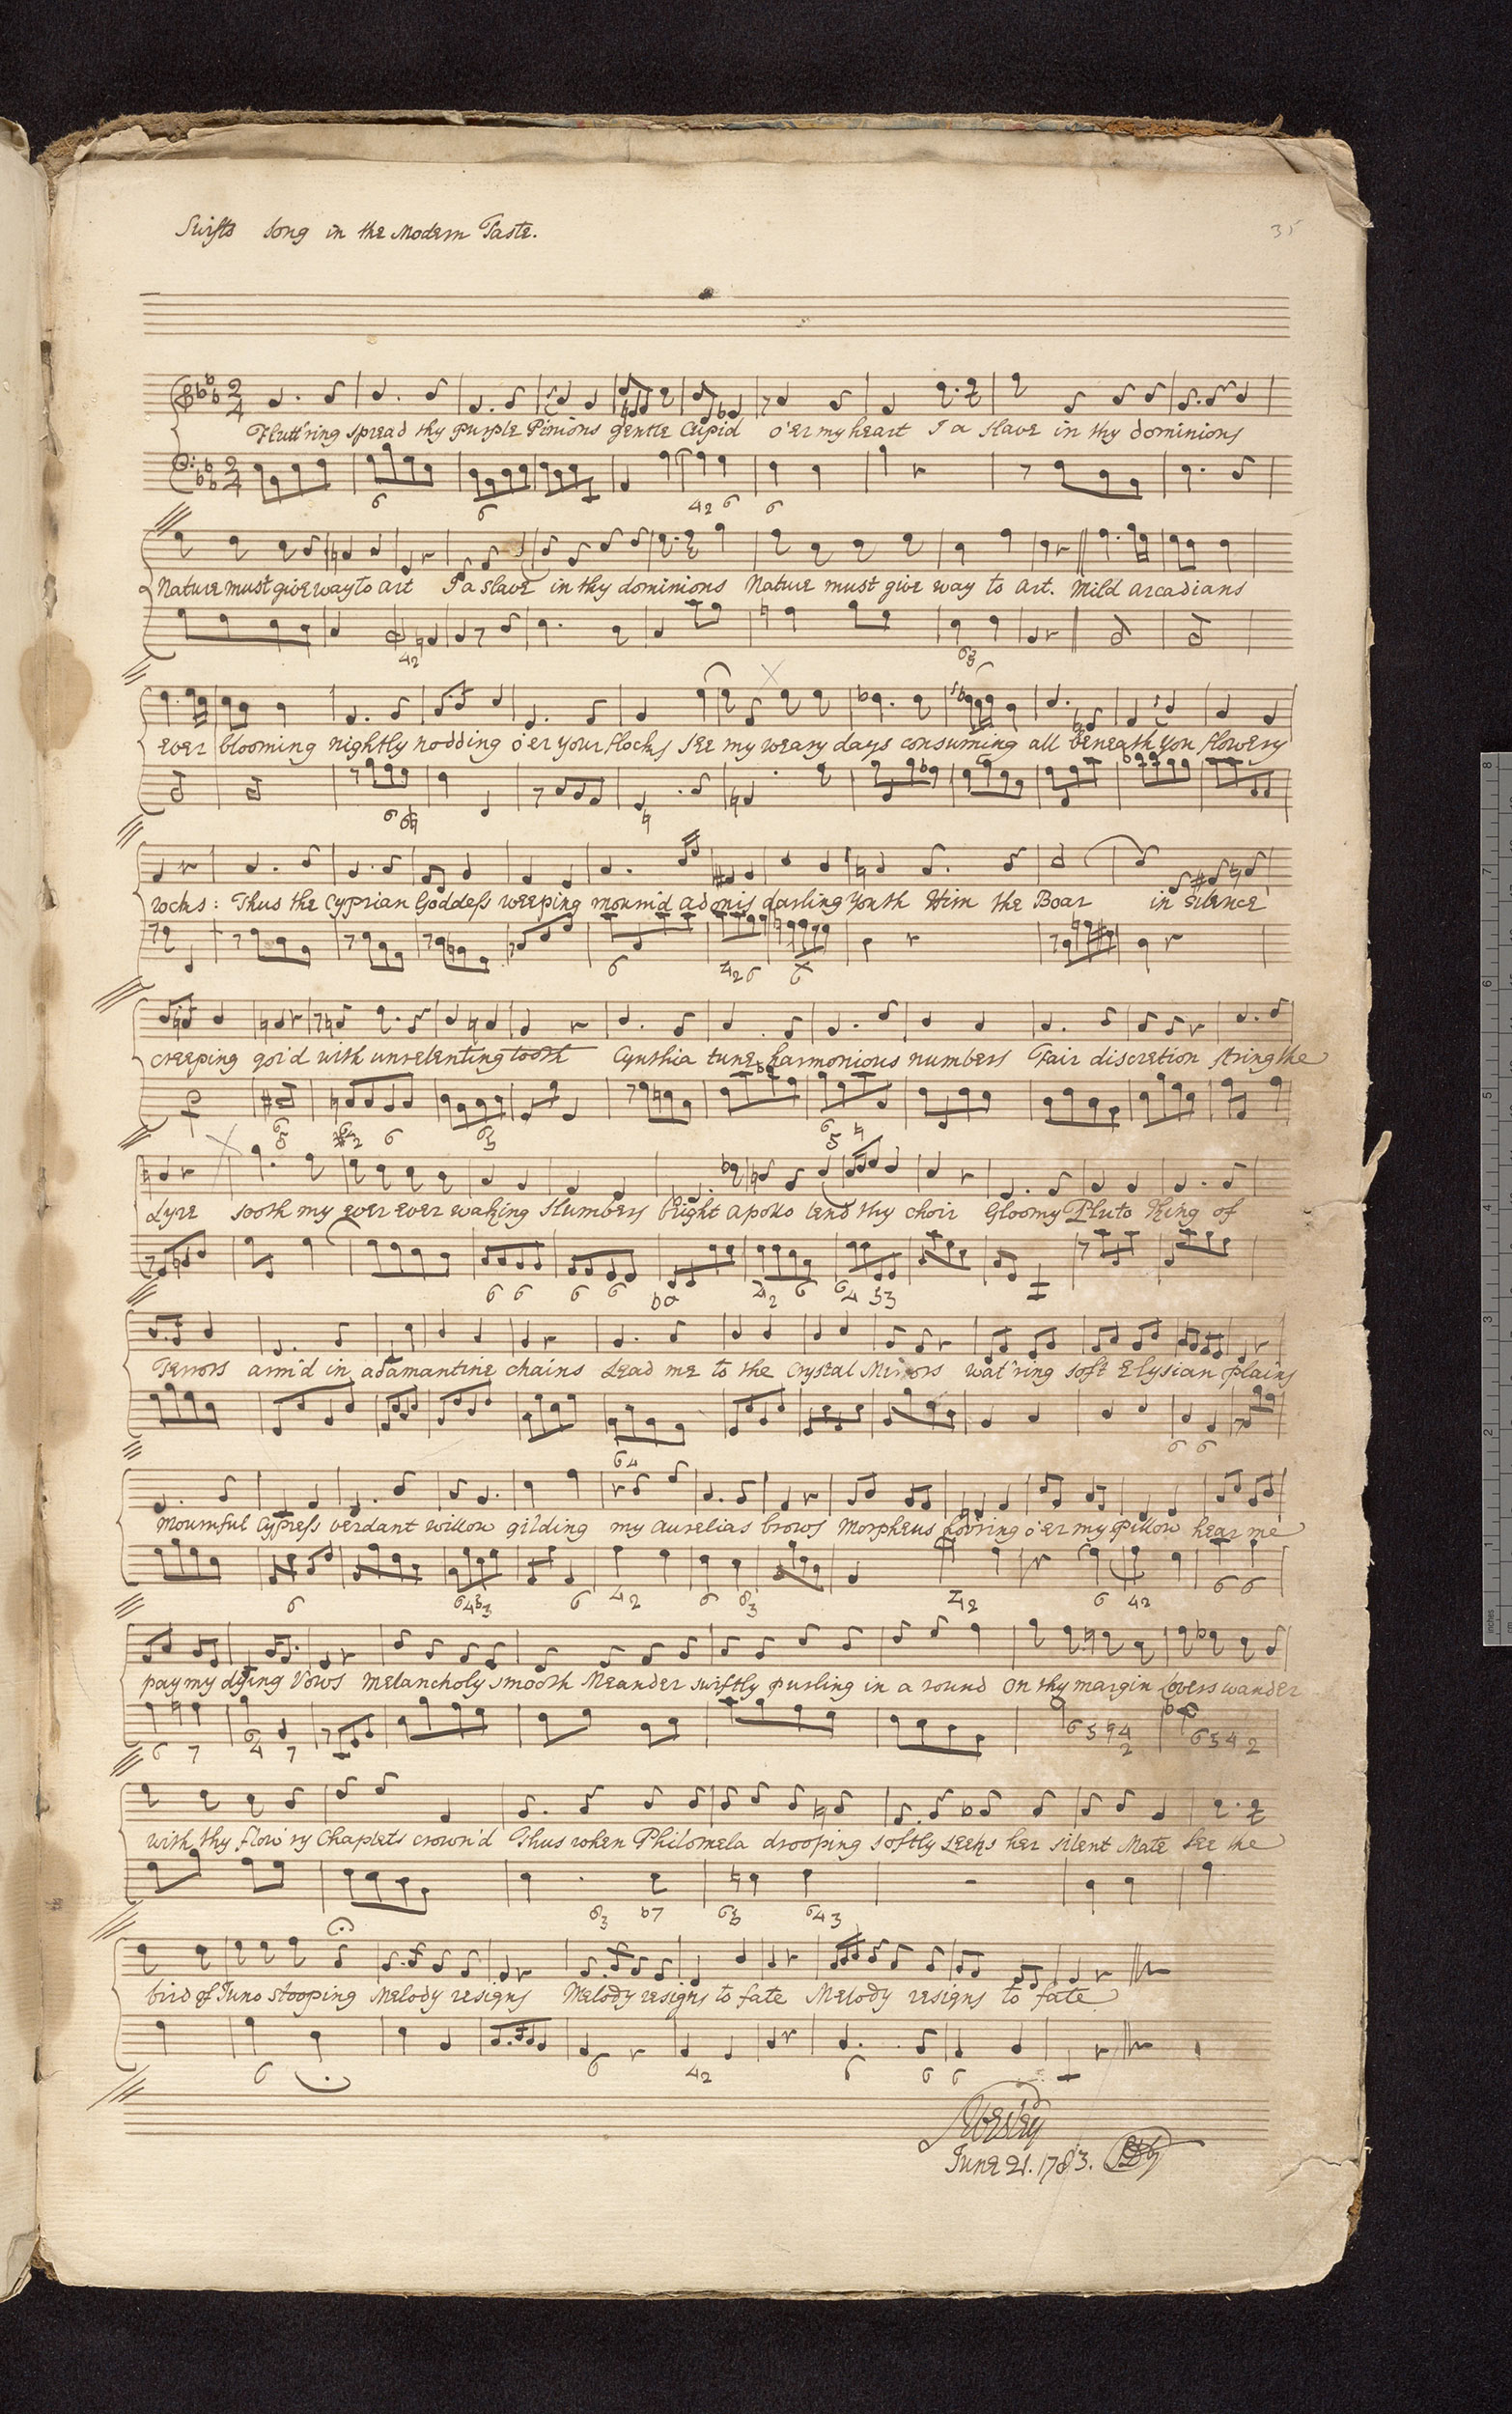 Swifts song in the Modern Taste.
35
Flutt'ring spread thy purple Pinions gentle Cupid o'er my heart I a slave in thy dominions
Nature must give way to art I a slave in thy dominions Nature must give way to Art. Mild arcadians
ever blooming nightly nodding o'er your flocks see my weary days consuming all beneath yon flowery
rocks: Thus the Cyprian Goddess weeping mourn'd adonis darling Youth Him the Boar in Silence
creeping gor'd with unrelenting tooth Cynthia tune harmonious numbers Fair discretion string the
Lyre sooth my ever ever waking slumbers bright Apollo lend thy choir Gloomy Pluto King of
Terrors arm'd in adamantine chains Lead me to the Crystal Mirrors wat'ring soft Elysian plains
Mournful Cypress verdant willow gilding my Aurelias brows Morpheus hov'ring o'er my Pillow hear me
pay my dying Vows Melancholy smooth Meander swiftly purling in a round On thy margin Lovers wander
with thy flow'ry Chaplets crown'd Thus when Philomela drooping softly seeks her silent Mate See the
bird of Juno stooping Melody resigns Melody resigns to fate Melody resigns to fate
SWesley
June 21. 1783.